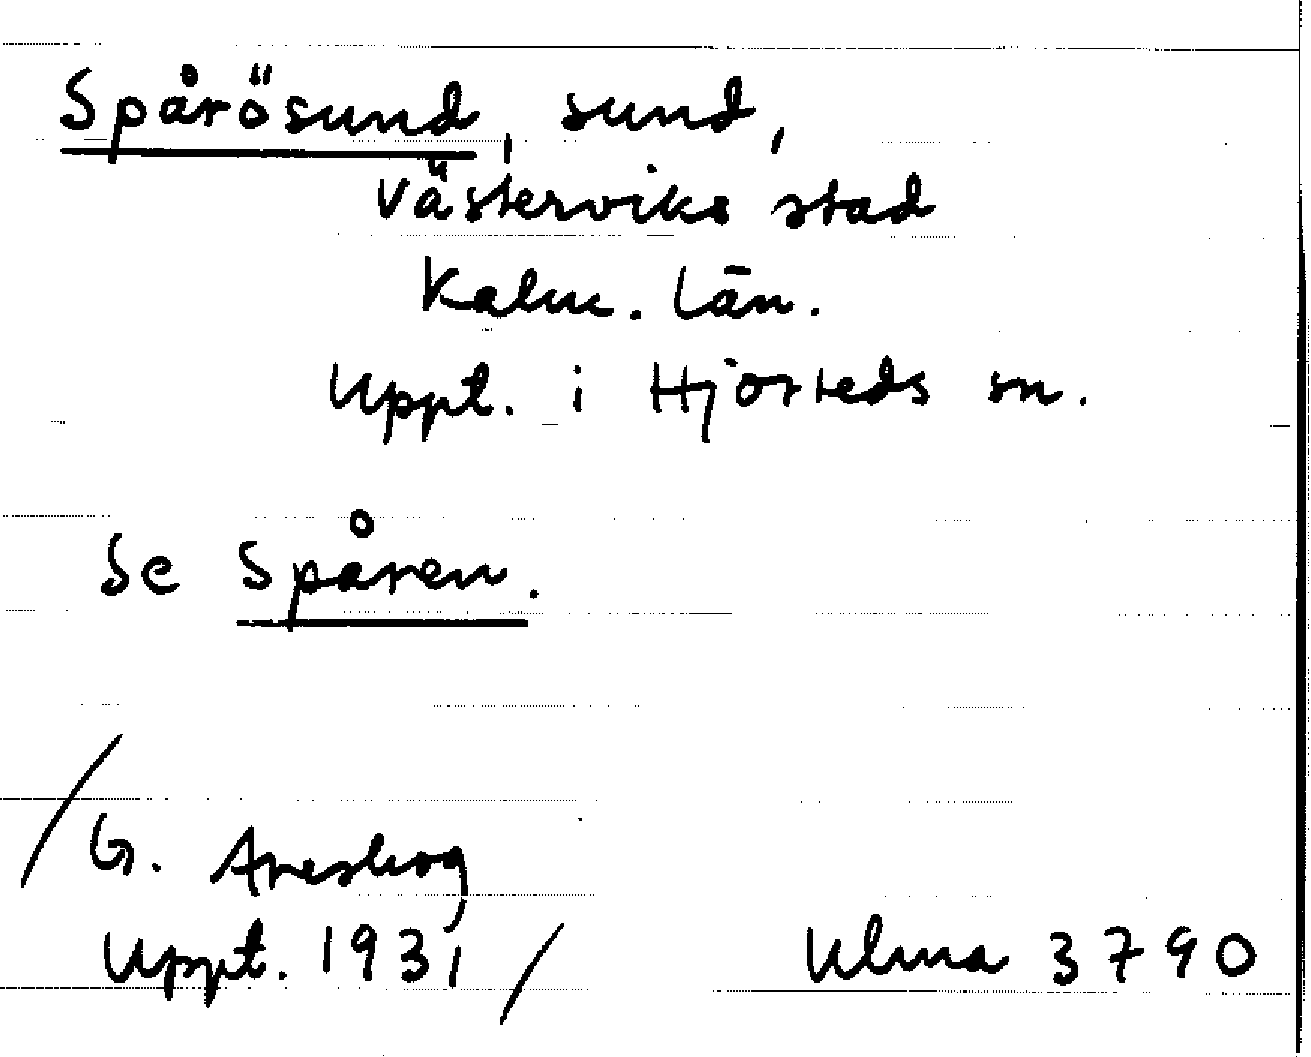 Spårösund, sund,
Västerviks stad
Kalm. län.
Uppt. i Hjorteds sn.
Se Spåren.
/G. Areskog
Uppt. 1931/ Ulma 3790